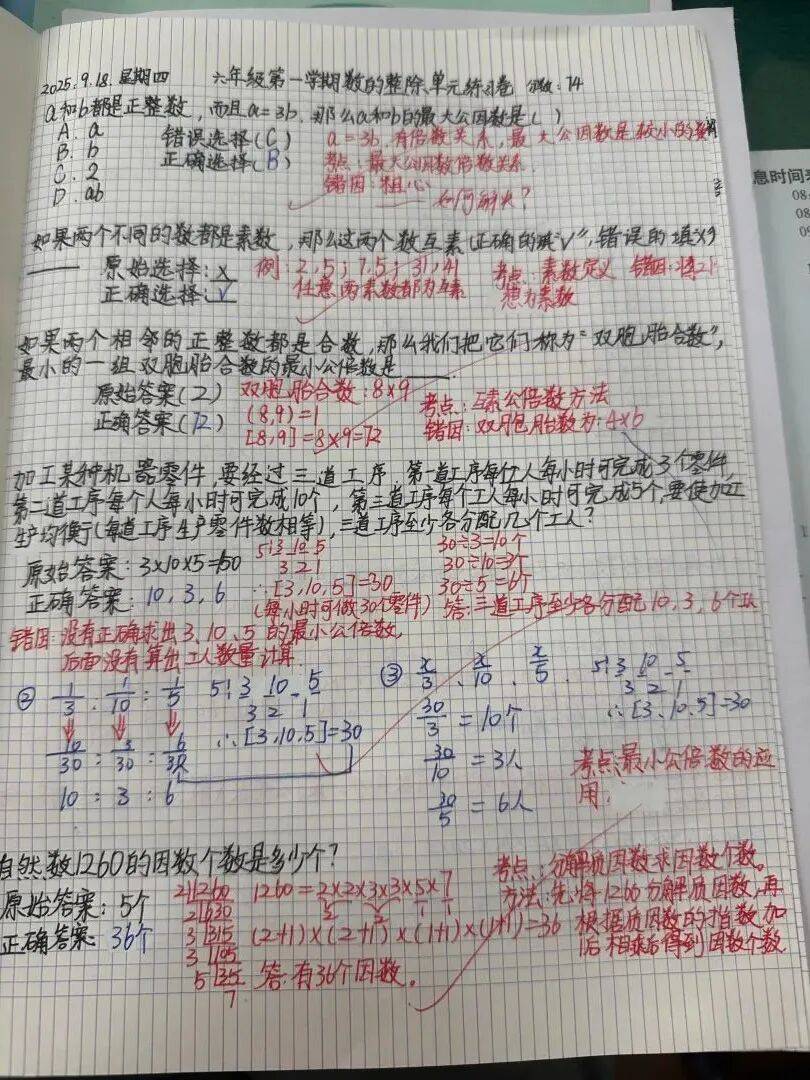 2025.9.18.星期四 六年级第一学期数的整除单元练习卷 分数:74
a和b都是正整数,而且a=3b,那么a和b的最大公因数是( )
A. a 错误选择(C) a=3b.有倍数关系,最大公因数是较小的数
B. b 正确选择(B) 考点:最大公因数倍数关系.
C. 2 错因:粗心
D. ab 如何解决?
如果两个不同的数都是素数,那么这两个数互素(正确的填"√",错误的填"×")
原始选择:× 例:2,5;7,5;31,41 考点:素数定义 错因:将21
正确选择:√ 任意两素数都为互素 想为素数
如果两个相邻的正整数都是合数,那么我们把它们称为"双胞胎合数",
最小的一组双胞胎合数的最小公倍数是
原始答案(2) 双胞胎合数:8×9 考点:互素公倍数方法
正确答案(72) (8,9)=1 错因:双胞胎数为:4×6
[8,9]=8×9=72
加工某种机器零件,要经过三道工序,第一道工序每位人每小时可完成3个零件,
第二道工序每个人每小时可完成10个,第三道工序每个工人每小时可完成5个,要使加工
生产均衡了(每道工序生产零件数相等),三道工序至少各分配几个工人?
原始答案:3×10×5=150 5⌊3 10 5 30÷3=10个
3 2 1 30÷10=3个
正确答案:10,3,6 ∴[3,10,5]=30 30÷5=6个
(每小时可做30个零件) 答:三道工序至少各分配10,3,6个工人
错因:没有正确求出3、10、5的最小公倍数,
后面没有算出工人数量计算.
② 1/3:1/10:1/5 5⌊3 10 5
3 2 1
∴[3,10,5]=30
10/30:3/30:6/30
10:3:6
③ x/3、x/10、x/5 5⌊3 10 5
3 2 1
30/3=10个 ∴[3、10、5]=30
30/10=3人
30/5=6人
考点:最小公倍数的应
用.
自然数1260的因数个数是多少个?
原始答案:5个
正确答案:36个
2⌊1260 1260=2×2×3×3×5×7
2 2 1 1
2⌊630
3⌊315 (2+1)×(2+1)×(1+1)×(1+1)=36
3⌊105
5⌊35 答:有36个因数。
7
考点:分解质因数求因数个数。
方法:先将1260分解质因数,再
根据质因数的指数加
1后相乘后得到因数个数
息时间表
08
08